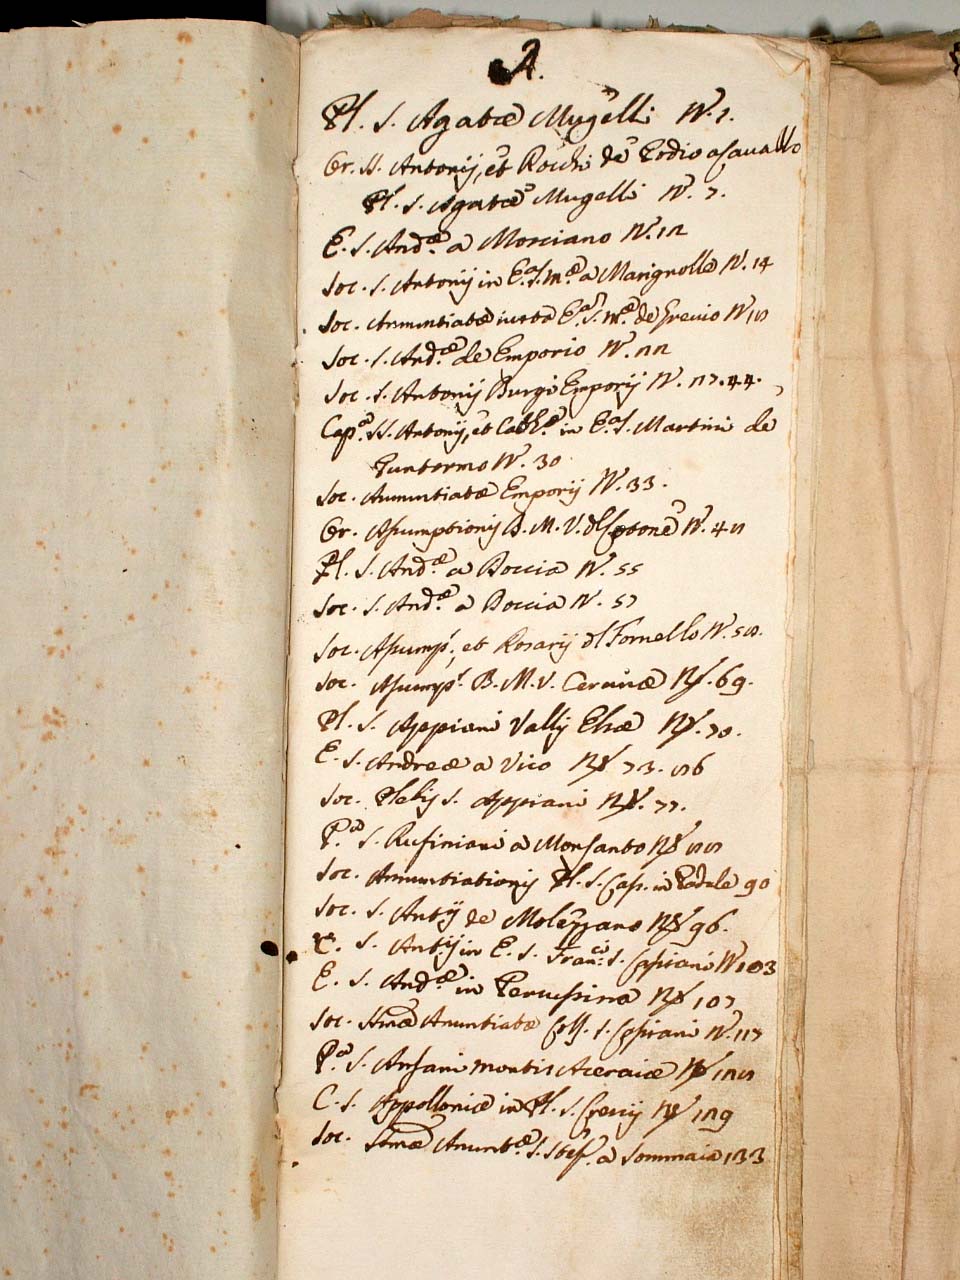 A.
Pl. S. Agatæ Mugelli N. 1.
Or. SS. Antonij, et Rocchi de Podio a Cavallo
Pl. S. Agatæ Mugelli N. 7.
E. S. And.æ a Morciano N. 12
Soc. S. Antonij in E.a S. M.æ a Marignolla N. 14
Soc. Annuntiatæ iuxta E.a S. M.æ de Grevio N. 18
Soc. S. And.æ de Emporio N. 22
Soc. S. Antonij Burgi Emporij N. 27. 44.
Cap.a SS. Antonij, et Cath.æ in E.a S. Martini de
Puntormo N. 30
Soc. Annuntiatæ Emporij N. 33.
Or. Assumptionis B. M. V. N. 48
Pl. S. And.æ a Doccia N. 55
Soc. S. And.æ a Doccia N. 57
Soc. Assump.s, et Rosarij dl Fornello N. 58.
Soc. Assump.s B. M. V. Cerrinæ N. 69.
Pl. S. Appiani Vallis Elsæ N. 70.
E. S. Andreæ a Vico N. 73. 86
Soc. Plebis S. Appiani N. 77.
P.a S. Rufiniani a Monsanto N. 88
Soc. Annuntiationis Pl. S. Cass. in Padule 90
Soc. S. Ant.ij de Molezzano N. 96.
C. S. Ant.ij in E. S. Fran.ci S. Cassiani N. 103
E. S. And.æ in Percussina N. 107
Soc. SSmæ Anuntiatæ S. Cassiani N. 117
P.a S. Ansani montis Aceraiæ N. 128
C. S. Appolloniæ in Pl. S. Cresij N. 129
Soc. SSmæ Anunt.æ S. Stef. a Sommaia 133